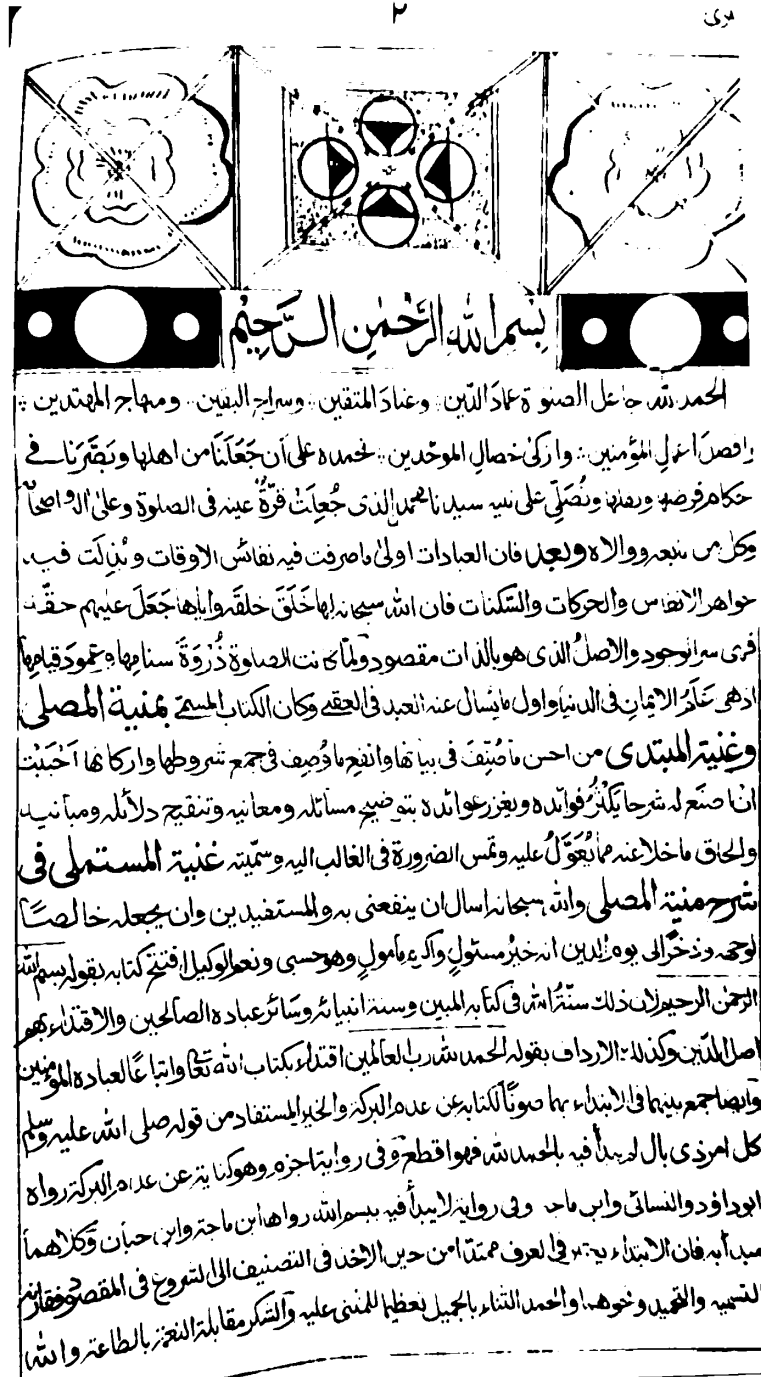 ٢
بِسْمِ اللهِ الرَّحْمٰنِ الرَّحِيْمِ
الحمد لله جاعل الصلوة عماد الدين وعتاد المتقين وسراج اليقين ومنهاج المهتدين
وافضل اعمال المؤمنين وازكى خصال الموحدين نحمده على أن جَعَلَنَا من اهلها وبَصَّرَنا في
احكام فرضها ونفلها ونُصَلِّي على نبيه سيدنا محمد الذى جُعِلَتْ قُرَّةُ عينه فى الصلوة وعلى اله واصحابه
وكل من تبعه ووالاه وبعد فان العبادات اولى ما صرفت فيه نفائس الاوقات وبُذِلَت فيه
جواهر الانفاس والحركات والسَّكنات فان الله سبحانه لها خَلَقَ خلقه واياها جَعَلَ عليهم حقه
فهى سر الوجود والاصلُ الذى هو بالذات مقصود ولمّا كانت الصلوة ذُرْوَةَ سنامها وعمودَ قيامها
اذ هى عماد الايمان فى الدنيا واول ما يسأل عنه العبد فى العقبى وكان الكتاب المسمى بمنية المصلى
وغنية المبتدى من احسن ما صُنِّفَ فى بيانها وانفع ما وُصِفَ فى جمع شروطها واركانها اَحْبَبْتُ
ان اصنَعَ له شرحا يَكْثُرُ فوائده ويغزر عوائده بتوضيح مسائله ومعانيه وتنقيح دلائله ومبانيه
والحاق ما خلا عنه مما يُعَوَّلُ عليه وتمس الضرورة فى الغالب اليه وسمّيته غنية المستملى فى
شرح منية المصلى والله سبحانه اسال ان ينفعنى به والمستفيدين وان يجعله خالصًا
لوجهه وذخرًا الى يوم الدين انه خيرُ مسئولٍ واكرم مامولٍ وهو حسبى ونعم الوكيل افتتح كتابه بقوله بسم الله
الرحمن الرحيم لان ذلك سنّةُ الله فى كتابه المبين وسنة انبيائه وسائر عباده الصالحين والاقتداء بهم
اصل الدّين وكذلك الارداف بقوله الحمد لله رب العالمين اقتداء بكتاب الله تعالى واتباعًا لعباده المؤمنين
وايضا جمع بينهما فى الابتداء بهما صونًا لكتابه عن عدم البركة والخير المستفاد من قوله صلى الله عليه وسلم
كل امر ذى بال لم يبدأ فيه بالحمد لله فهو اقطع وفى رواية اجزم وهو كناية عن عدم البركة رواه
ابو داؤد والنسائى وابن ماجه وفى رواية لا يبدأ فيه ببسم الله رواها ابن ماجة وابن حبان وكلاهما
مبدأ به فان الابتداء فى العرف ممتدّا من حين الاخذ فى التصنيف الى الشروع فى المقصود فقارنه
التسمية والتحميد ونحوهما والحمد الثناء بالجميل تعظيما للمثنى عليه والشكر مقابلة النعم بالطاعة والله